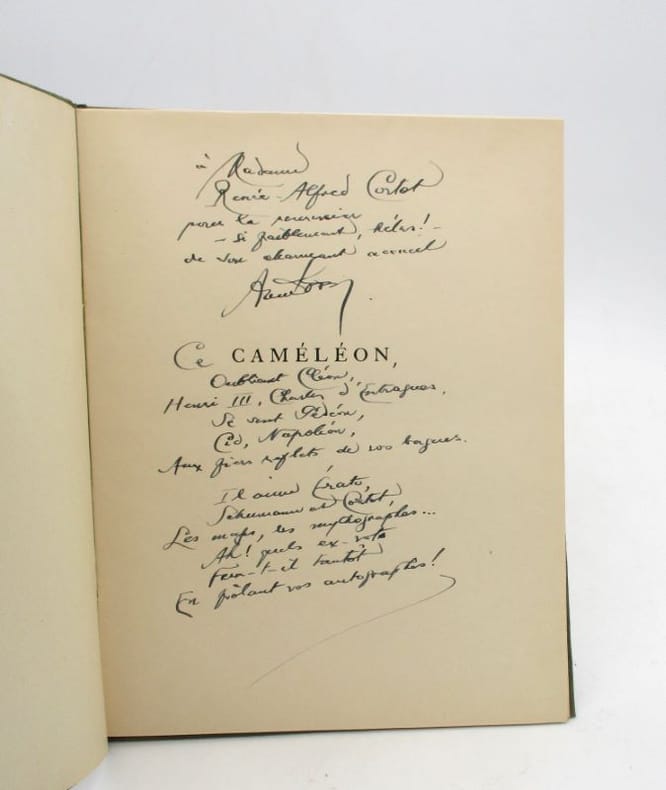 à Madame
Renée-Alfred Cortot
pour la remercier
– si faiblement, hélas! –
de son charmant accueil
Ce CAMÉLÉON,
Oubliant Cléon,
Henri III, Charles d'Entragues,
Se sent Gédéon,
Cid, Napoléon,
Aux fiers reflets de vos bagues.
Il aime Érato,
Schumann et Cortot,
Les mages, les mythographes...
Ah! quels ex-voto
Fera-t-il tantôt
En frôlant vos autographes!